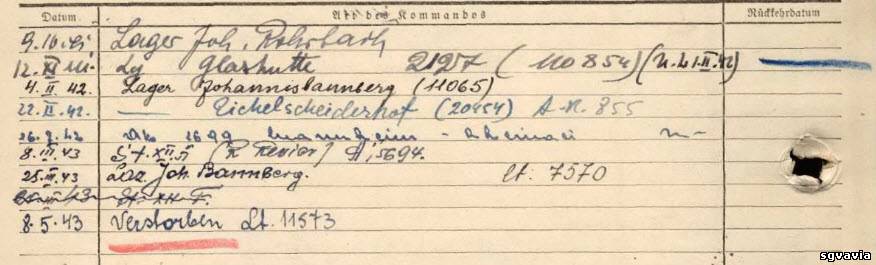 Datum. Art des Kommandos Rückkehrdatum
9.10.41 Lager Joh. Rohrbach
12.XI.41. Lg Glashütte 21957 (110854) (n.L1.II.42)
4.II.42. Lager Johannisbannberg (11065)
22.II.42. — Eichelscheiderhof (20454) A.N. 855
26.9.42 Ako 1699 Mannheim - Rheinau
8.III.43 St. XII.F (R Revier) 5694.
25.III.43 Laz. Joh. Bannberg. Lt. 7570
St. XII F.
8.5.43 Verstorben Lt. 11573
sgvavia